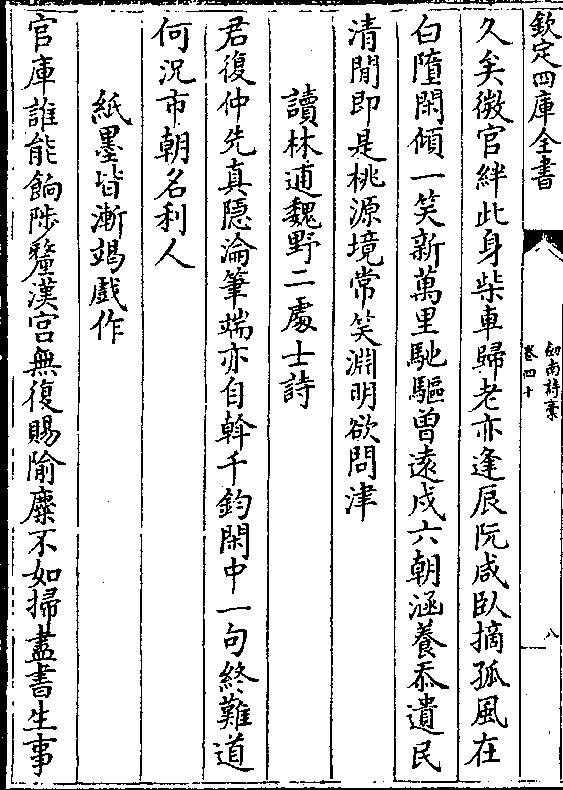 欽定四庫全書
劍南詩稾
卷四十
八
久矣微官絆此身柴車歸老亦逢辰阮咸臥摘孤風在
白墮閑傾一笑新萬里馳驅曾遠戍六朝涵養忝遺民
清閒即是桃源境常笑淵明欲問津
讀林逋魏野二處士詩
君復仲先真隱淪筆端亦自斡千鈞閑中一句終難道
何況市朝名利人
紙墨皆漸竭戲作
官庫誰能餉陟釐漢宮無復賜隃麋不如掃盡書生事